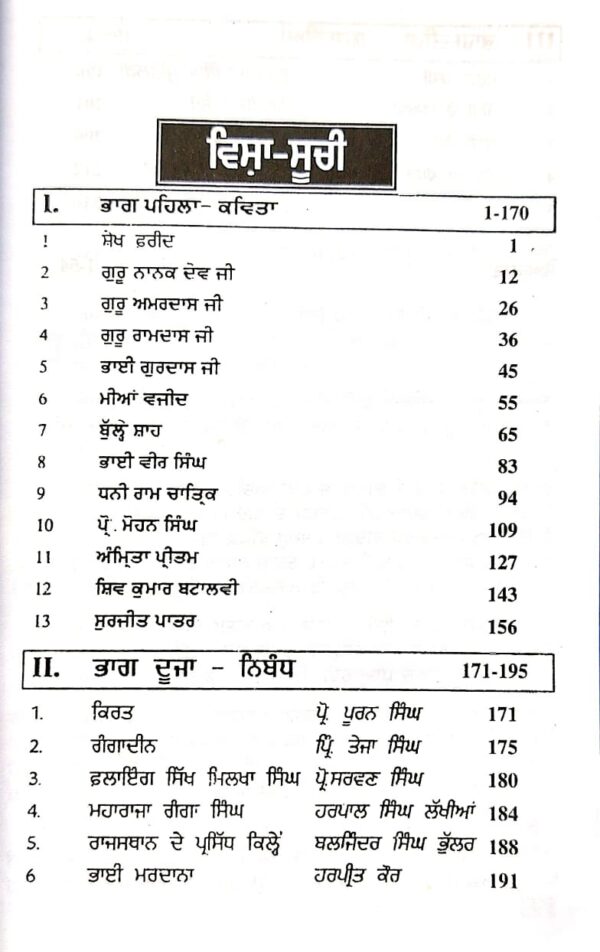 ਵਿਸ਼ਾ-ਸੂਚੀ
I. ਭਾਗ ਪਹਿਲਾ- ਕਵਿਤਾ 1-170
! ਸ਼ੇਖ ਫ਼ਰੀਦ 1
2 ਗੁਰੂ ਨਾਨਕ ਦੇਵ ਜੀ 12
3 ਗੁਰੂ ਅਮਰਦਾਸ ਜੀ 26
4 ਗੁਰੂ ਰਾਮਦਾਸ ਜੀ 36
5 ਭਾਈ ਗੁਰਦਾਸ ਜੀ 45
6 ਮੀਆਂ ਵਜੀਦ 55
7 ਬੁੱਲ੍ਹੇ ਸ਼ਾਹ 65
8 ਭਾਈ ਵੀਰ ਸਿੰਘ 83
9 ਧਨੀ ਰਾਮ ਚਾਤ੍ਰਿਕ 94
10 ਪ੍ਰੋ. ਮੋਹਨ ਸਿੰਘ 109
11 ਅੰਮ੍ਰਿਤਾ ਪ੍ਰੀਤਮ 127
12 ਸ਼ਿਵ ਕੁਮਾਰ ਬਟਾਲਵੀ 143
13 ਸੁਰਜੀਤ ਪਾਤਰ 156
II. ਭਾਗ ਦੂਜਾ - ਨਿਬੰਧ 171-195
1. ਕਿਰਤ ਪ੍ਰੋ. ਪੂਰਨ ਸਿੰਘ 171
2. ਗੰਗਾਦੀਨ ਪ੍ਰਿੰ. ਤੇਜਾ ਸਿੰਘ 175
3. ਫ਼ਲਾਇੰਗ ਸਿੱਖ ਮਿਲਖਾ ਸਿੰਘ ਪ੍ਰੋ.ਸਰਵਣ ਸਿੰਘ 180
4. ਮਹਾਰਾਜਾ ਗੰਗਾ ਸਿੰਘ ਹਰਪਾਲ ਸਿੰਘ ਲੱਖੀਆਂ 184
5. ਰਾਜਸਥਾਨ ਦੇ ਪ੍ਰਸਿੱਧ ਕਿਲ੍ਹੇਂ ਬਲਜਿੰਦਰ ਸਿੰਘ ਭੁੱਲਰ 188
6 ਭਾਈ ਮਰਦਾਨਾ ਹਰਪ੍ਰੀਤ ਕੌਰ 191